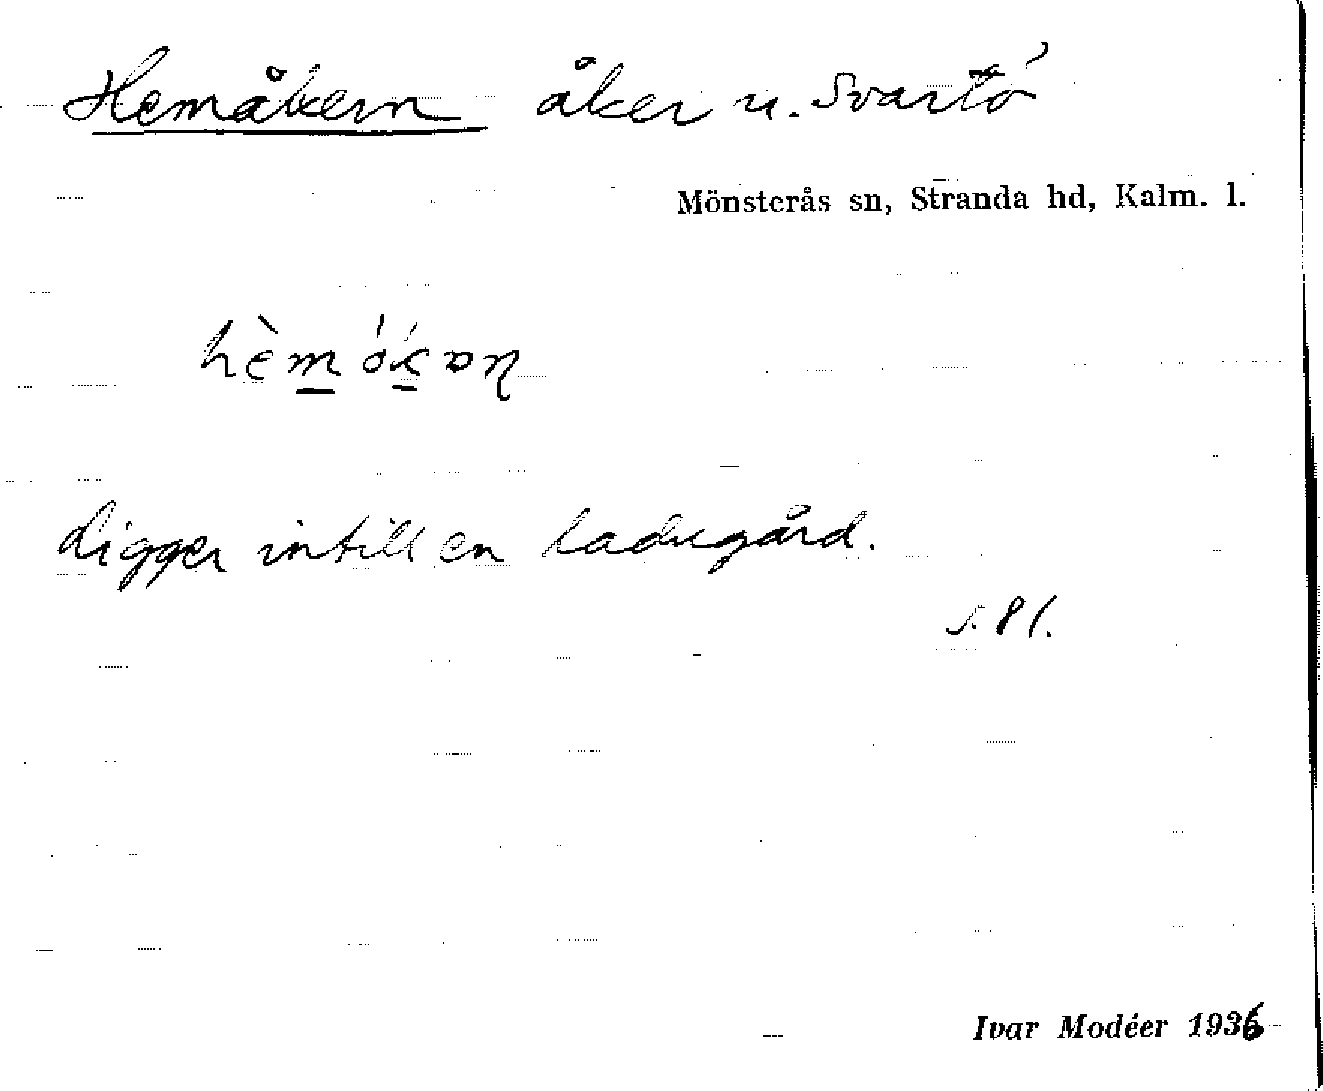 Hemåkern åker u. Svartö
Mönsterås sn, Stranda hd, Kalm. l.
hèmókan
Ligger intill en ladugård.
s. 81.
Ivar Modéer 1936